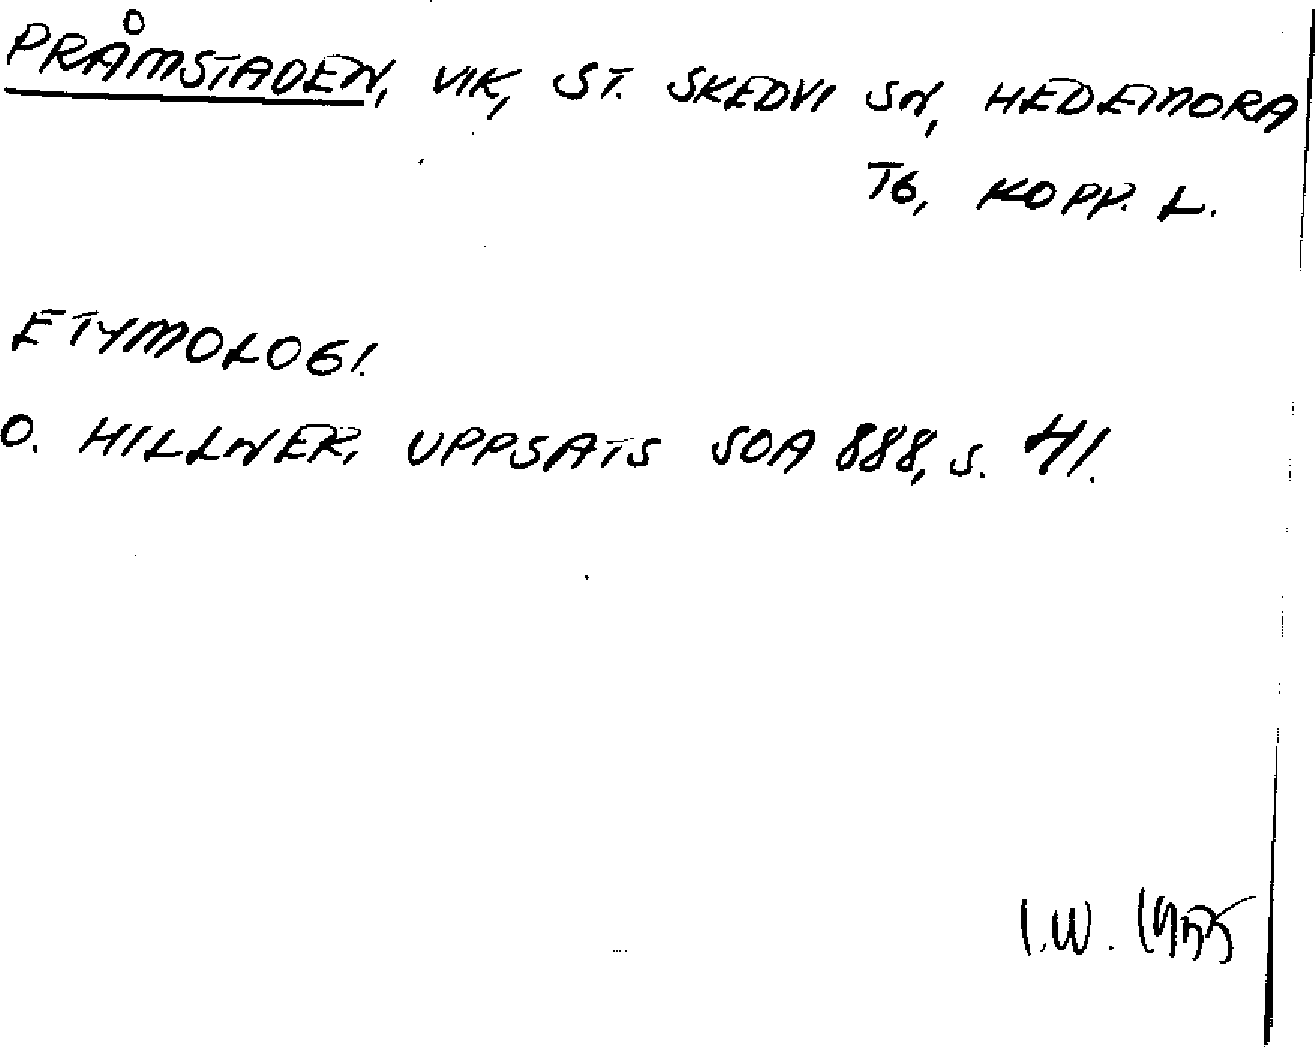 PRÅMSTADEN, VIK, ST. SKEDVI SN, HEDEMORA
TG, KOPP. L.
ETYMOLOGI.
O. HILLNER, UPPSATS SOA 888, S. 41.
I.W. 1955